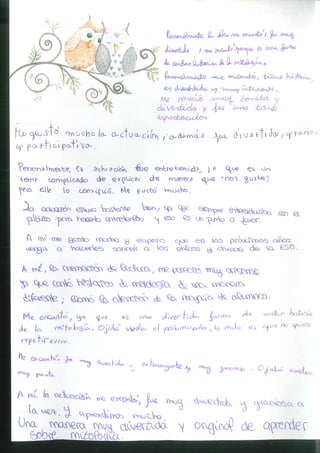 Personalmente, la obra me encantó, fue muy
divertida y me encantó porque es una forma
de contar historias de la mitología.
Personalmente me encantó, tiene historia,
es divertida y muy interesante.
Me pareció muy bonita y
divertida y fue una tarde
espectacular
Me gustó mucho la actuación, además fue divertida, y
y participativa.
Personalmente la actuación fue entretenida, ya que es un
tema complicado de explicar de manera que "nos guste";
pero ella lo consiguió. Me gustó mucho.
La actuación estuvo bastante bien, ya que siempre interactuaba con el
público para hacerlo entretenido y eso es un punto a favor.
A mí me gustó mucho y espero que en los próximos años
venga a hacerles sonreír a los chicos y chicas de la ESO.
A mí, la animación de lectura, me pareció muy
ya que contó historias de mitología de una manera
diferente; llamó la atención de la mayoría de alumnos.
Me encantó, ya que es una divertida forma de contar historias
de la mitología. Ojalá vuelva el próximo año, lo malo es que no quiero
repetir curso.
Me encantó, fue muy divertida y
muy pronto. Ojalá vuelva
A mí la actuación me encantó, fue muy divertida y graciosa a
la vez. Y aprendimos mucho.
Una manera muy divertida y original de aprender
sobre mitología.